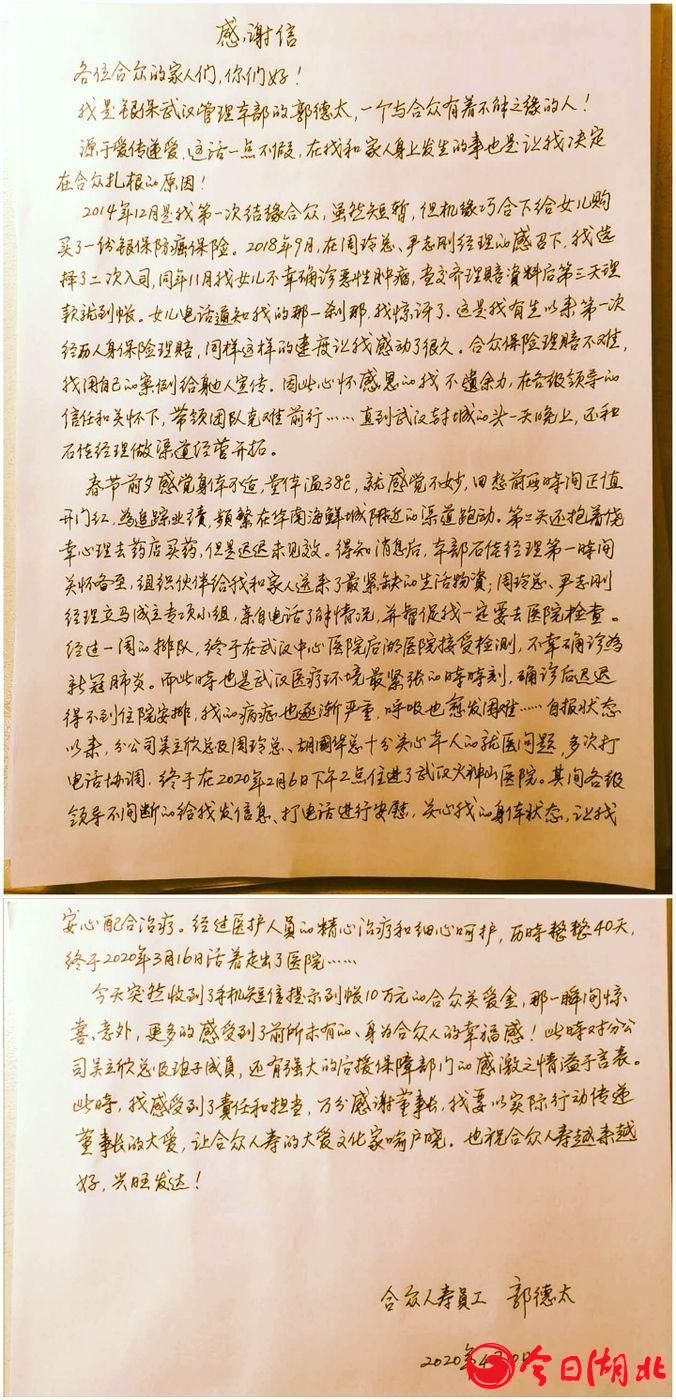 感谢信
各位合众的家人们,你们好!
我是银保武汉管理本部的郭德太,一个与合众有着不解之缘的人!
源于爱传递爱,这话一点不假,在我和家人身上发生的事也是让我决定
在合众扎根的原因!
2014年12月是我第一次结缘合众,虽然短暂,但机缘巧合下给女儿购
买了一份银保防癌保险。2018年9月,在周玲总、尹志刚经理的感召下,我选
择了二次入司,同年11月我女儿不幸确诊恶性肿瘤,查交齐理赔资料后第三天理
款就到帐。女儿电话通知我的那一刹那,我惊讶了.这是我有生以来第一次
经历人身保险理赔,同样这样的速度让我感动了很久。合众保险理赔不难,
我用自己的案例给身边人宣传。因此心怀感恩的我不遗余力,在各级领导的
信任和关怀下,带领团队克难前行……直到武汉封城的头一天晚上,还和
石佳经理做渠道经营开拓。
春节前夕感觉身体不适,量体温38℃,就感觉不妙,回想前段时间正值
开门红,为追踪业绩,频繁在华南海鲜城附近的渠道跑动。第二天还抱着侥
幸心理去药店买药,但是迟迟未见效。得知消息后,本部石佳经理第一时间
关怀备至,组织伙伴给我和家人送来了最紧缺的生活物資;周玲总、尹志刚
经理立马成立专项小组,亲自电话了解情况,并督促我一定要去医院检查。
经过一周的排队,终于在武汉中心医院后湖医院接受检测,不幸确诊为
新冠肺炎。而此時也是武汉医疗环境最紧张的時時刻,确诊后迟迟
得不到住院安排,我的病症也逐渐严重,呼吸也愈发困难……自报状态
以来,分公司吴立欣总及周玲总、胡國华总十分关心本人的就医问题,多次打
电话协调,终于在2020年2月6日下午2点住进了武汉火神山医院。其间各级
领导不间断的给我发信息、打电话进行安慰,关心我的身体状态,让我
安心配合治疗。经过医护人员的精心治疗和细心呵护,历時整整40天,
终于2020年3月16日活着走出了医院……
今天突然收到了手机短信提示到帐10万元的合众关爱金,那一瞬间惊
喜、意外,更多的感受到了前所未有的、身为合众人的幸福感!此時对分公
司吴立欣总及班子成員,还有强大的后援保障部门的感激之情溢于言表。
此時,我感受到了責任和担当,万分感谢董事长,我要以实际行动传递
董事长的大爱,让合众人寿的大爱文化家喻户晓。也祝合众人寿越来越
好,兴旺发达!
合众人寿員工 郭德太
2020年4月
今日湖北